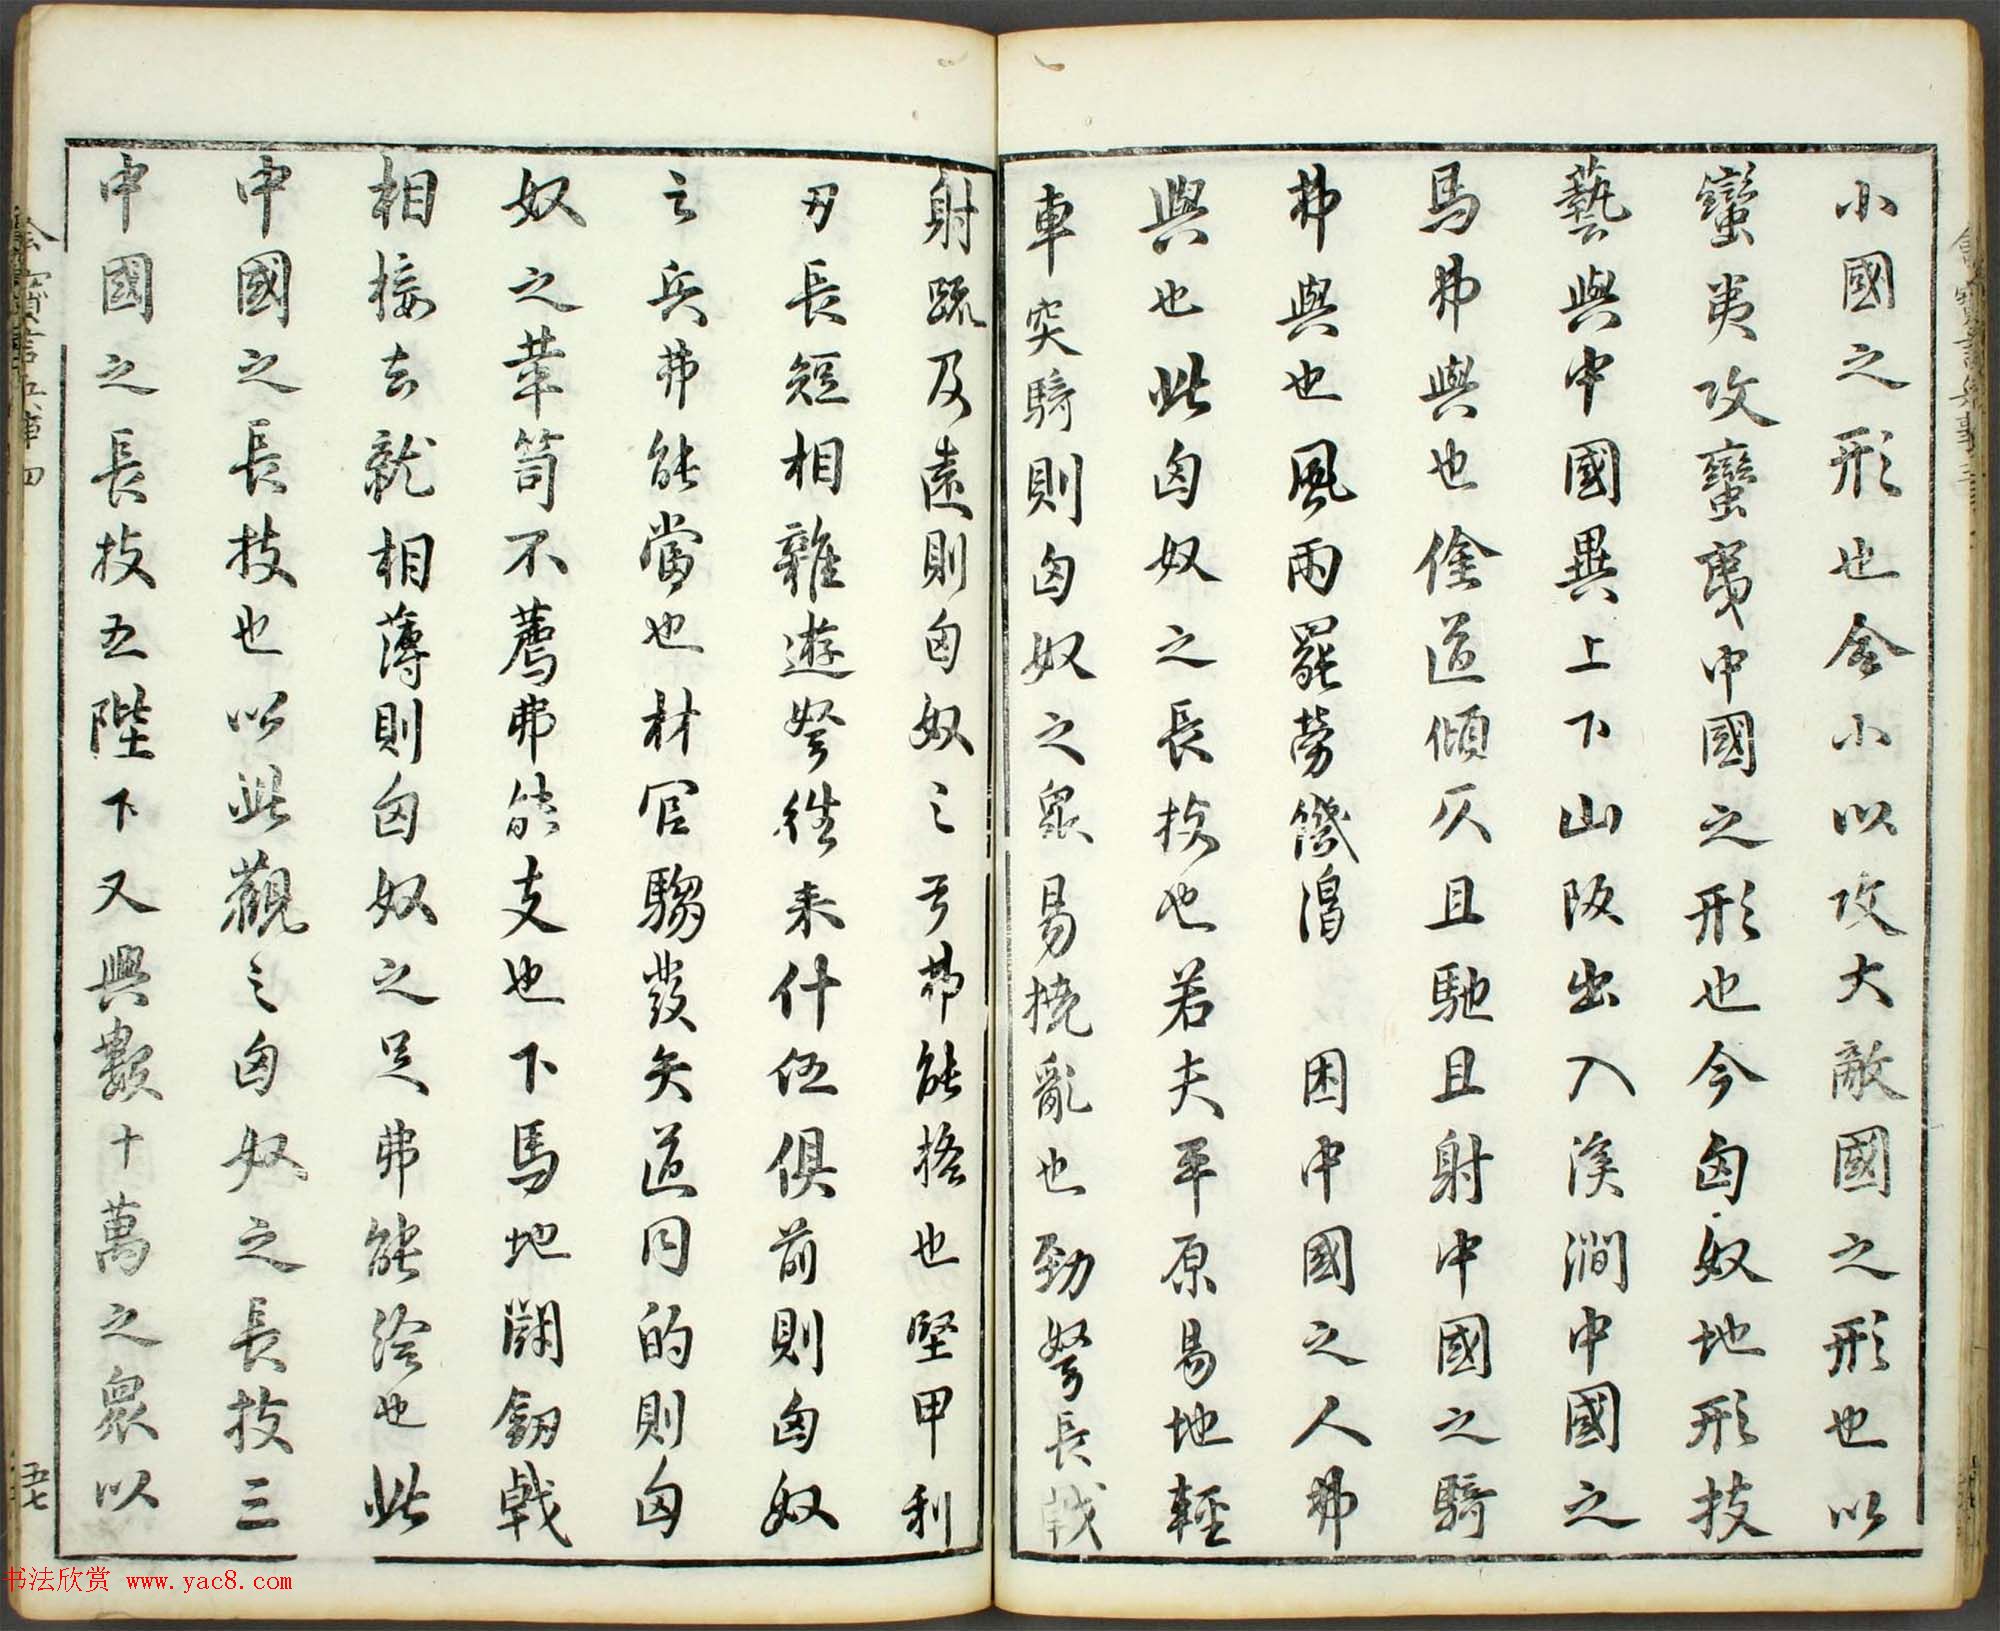 小國之形也合小以攻大敵國之形也以
蠻夷攻蠻夷中國之形也今匈奴地形技
藝與中國異上下山阪出入溪澗中國之
馬弗與也險道傾仄且馳且射中國之騎
弗與也風雨罷勞饑渴 困中國之人弗
與也此匈奴之長技也若夫平原易地輕
車突騎則匈奴之衆易撓亂也勁弩長戟
射疏及遠則匈奴之弓弗能格也堅甲利
刃長短相雜遊弩往来什伍俱前則匈奴
之兵弗能當也材官騶發矢道同的則匈
奴之革笥木薦弗能支也下馬地鬭劒戟
相接去就相薄則匈奴之足弗能給也此
中國之長技也以此觀之匈奴之長技三
中國之長技五陛下又興數十萬之衆以
五七
书法欣赏 www.yac8.com